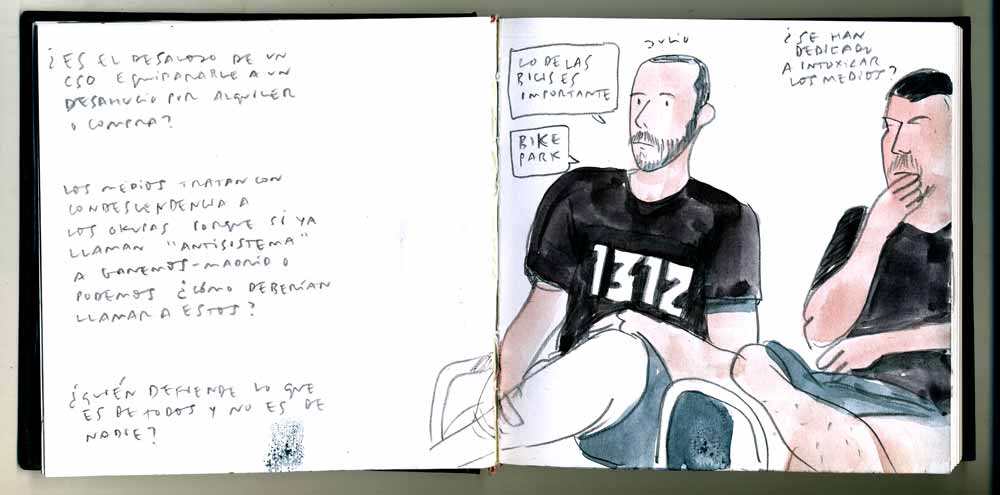 ¿ES EL DESALOJO DE UN
CSO EQUIPARABLE A UN
DESAHUCIO POR ALQUILER
O COMPRA?
LOS MEDIOS TRATAN CON
CONDESCENDENCIA A
LOS OKUPAS PORQUE SI YA
LLAMAN "ANTISISTEMA"
A GANEMOS-MADRID O
PODEMOS ¿CÓMO DEBERÍAN
LLAMAR A ESTOS?
¿QUIÉN DEFIENDE LO QUE
ES DE TODOS Y NO ES DE
NADIE?
JULIO
LO DE LAS
BICIS ES
IMPORTANTE
BIKE
PARK
1312
¿SE HAN
DEDICADO
A INTOXICAR
LOS MEDIOS?